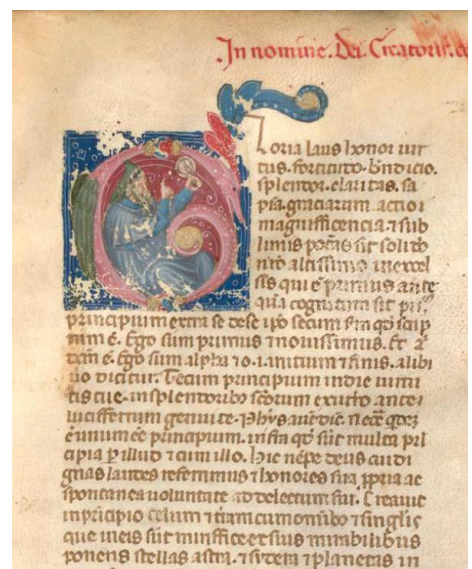 In nomine. Dei. Creatoris.
loria laus honor uir
tus. fortitudo. bndicio.
splendor. claritas. sa
pia. graciarum actio
magnifficencia ⁊ sub
limis
nro altissimo in excel
sis qui é primus ante
quã cognitum sit
principium
nim é. Ego sum primus ⁊ nouissimus. Et
dem é. Ego sum alpha ⁊ o. initium ⁊ finis. alibi
uo dicitur. Tecum principium in die uirtu
tis tue. in splendoribus scorum ex utero ante
lucifferum genui te.
é unum ée principium. multa pri
cipia illud ⁊ cum illo. hic nẽpe deus cui di
gnas laudes referimus ⁊ honores sua ppria ac
spontanea uoluntate ad delectum sui. Creauit
in principio celum ⁊ tram cum omnibus ⁊ singlis
que in eis sunt miriffice et suis mirabilibus
ponens stellas astra. ⁊ sydera ⁊ planetas in